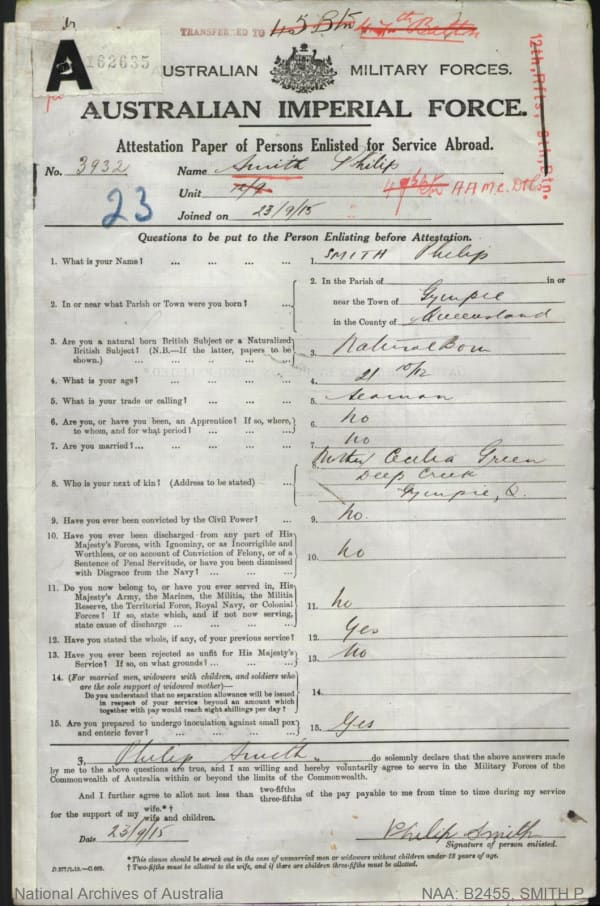 TRANSFERRED TO 45 Btn 47th Battn
A 162635
AUSTRALIAN MILITARY FORCES.
12th Rfts, 9th Btn.
AUSTRALIAN IMPERIAL FORCE.
Attestation Paper of Persons Enlisted for Service Abroad.
No. 3932 Name Smith Philip
Unit 49th Btn A.A.M.C. Dtls
23
Joined on 23/9/15
Questions to be put to the Person Enlisting before Attestation.
1. What is your Name? ... ... ... ... 1. SMITH Philip
2. In or near what Parish or Town were you born? ... 2. In the Parish of in or
near the Town of Gympie
in the County of Queensland
3. Are you a natural born British Subject or a Naturalized
British Subject? (N.B.—If the latter, papers to be
shown.) ... ... ... ... 3. Natural Born
4. What is your age? ... ... ... ... 4. 21 10/12
5. What is your trade or calling? ... ... ... 5. Seaman
6. Are you, or have you been, an Apprentice? If so, where,
to whom, and for what period? ... ... ... 6. No
7. Are you married? ... ... ... ... 7. No
8. Who is your next of kin? (Address to be stated) ... 8. Mother Cecilia Green
Deep Creek
Gympie, Q.
9. Have you ever been convicted by the Civil Power? ... 9. No.
10. Have you ever been discharged from any part of His
Majesty's Forces, with Ignominy, or as Incorrigible and
Worthless, or on account of Conviction of Felony, or of a
Sentence of Penal Servitude, or have you been dismissed
with Disgrace from the Navy? ... ... ... 10. No
11. Do you now belong to, or have you ever served in, His
Majesty's Army, the Marines, the Militia, the Militia
Reserve, the Territorial Force, Royal Navy, or Colonial
Forces? If so, state which, and if not now serving,
state cause of discharge ... ... ... ... 11. No
12. Have you stated the whole, if any, of your previous service? 12. Yes
13. Have you ever been rejected as unfit for His Majesty's
Service? If so, on what grounds? ... ... ... 13. No
14. (For married men, widowers with children, and soldiers who
are the sole support of widowed mother)—
Do you understand that no separation allowance will be issued
in respect of your service beyond an amount which
together with pay would reach eight shillings per day? 14.
15. Are you prepared to undergo inoculation against small pox
and enteric fever? ... ... ... ... 15. Yes
I, Philip Smith do solemnly declare that the above answers made
by me to the above questions are true, and I am willing and hereby voluntarily agree to serve in the Military Forces of the
Commonwealth of Australia within or beyond the limits of the Commonwealth.
And I further agree to allot not less than two-fifths three-fifths of the pay payable to me from time to time during my service
for the support of my wife.*† wife and children.
Date 23/9/15 Philip Smith
Signature of person enlisted.
*This clause should be struck out in the case of unmarried men or widowers without children under 18 years of age.
† Two-fifths must be allotted to the wife, and if there are children three-fifths must be allotted.
National Archives of Australia NAA: B2455, SMITH P